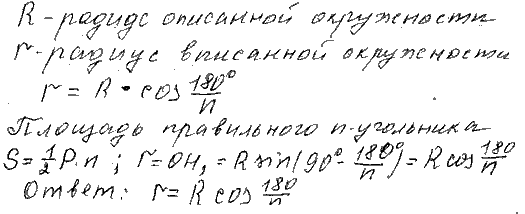 R - радиус описанной окружности
r - радиус вписанной окружности
r = R • cos 180°/n
Площадь правильного n-угольника
S = 1/2 P·n ; r = OH₁ = R sin(90° - 180°/n) = R cos 180/n
Ответ: r = R cos 180/n